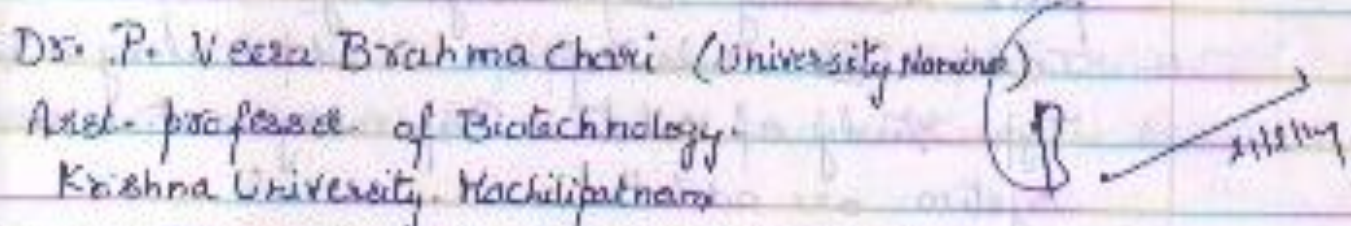 Dr. P. Veera Brahma chari (University Nominee)
Asst. professor of Biotechnology.
Krishna University, Machilipatnam